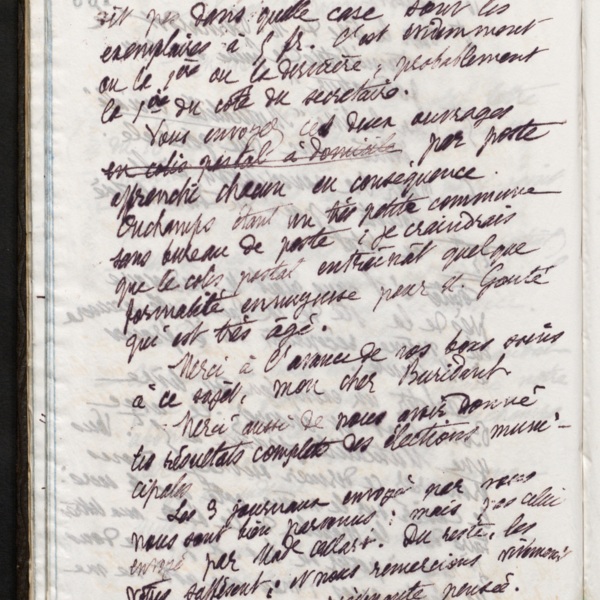 sit pas dans quelle case sont les
exemplaires à 5 fr. C'est évidemment
ou la 1ère ou la dernière, probablement
la 1ère du côté du secrétaire.
Vous envoyez ces deux ouvrages
en colis postal à domicile par poste
affranchi chacun en conséquence.
Onchamps étant un très petite commune
sans bureau de poste, je craindrais
que le colis postal entraînât quelque
formalité ennuyeuse pour M. Gouté
qui est très âgé.
Merci à l'avance de vos bons soins
à ce sujet, mon cher Buridant
Merci aussi de nous avoir donné
les résultats complets des élections muni-
cipales
Les 3 journaux envoyés par vous
nous sont bien parvenus : mais pas celui
envoyé par Made Collart. Du reste, les
vôtres suffisent ; et nous remercions
pensée.